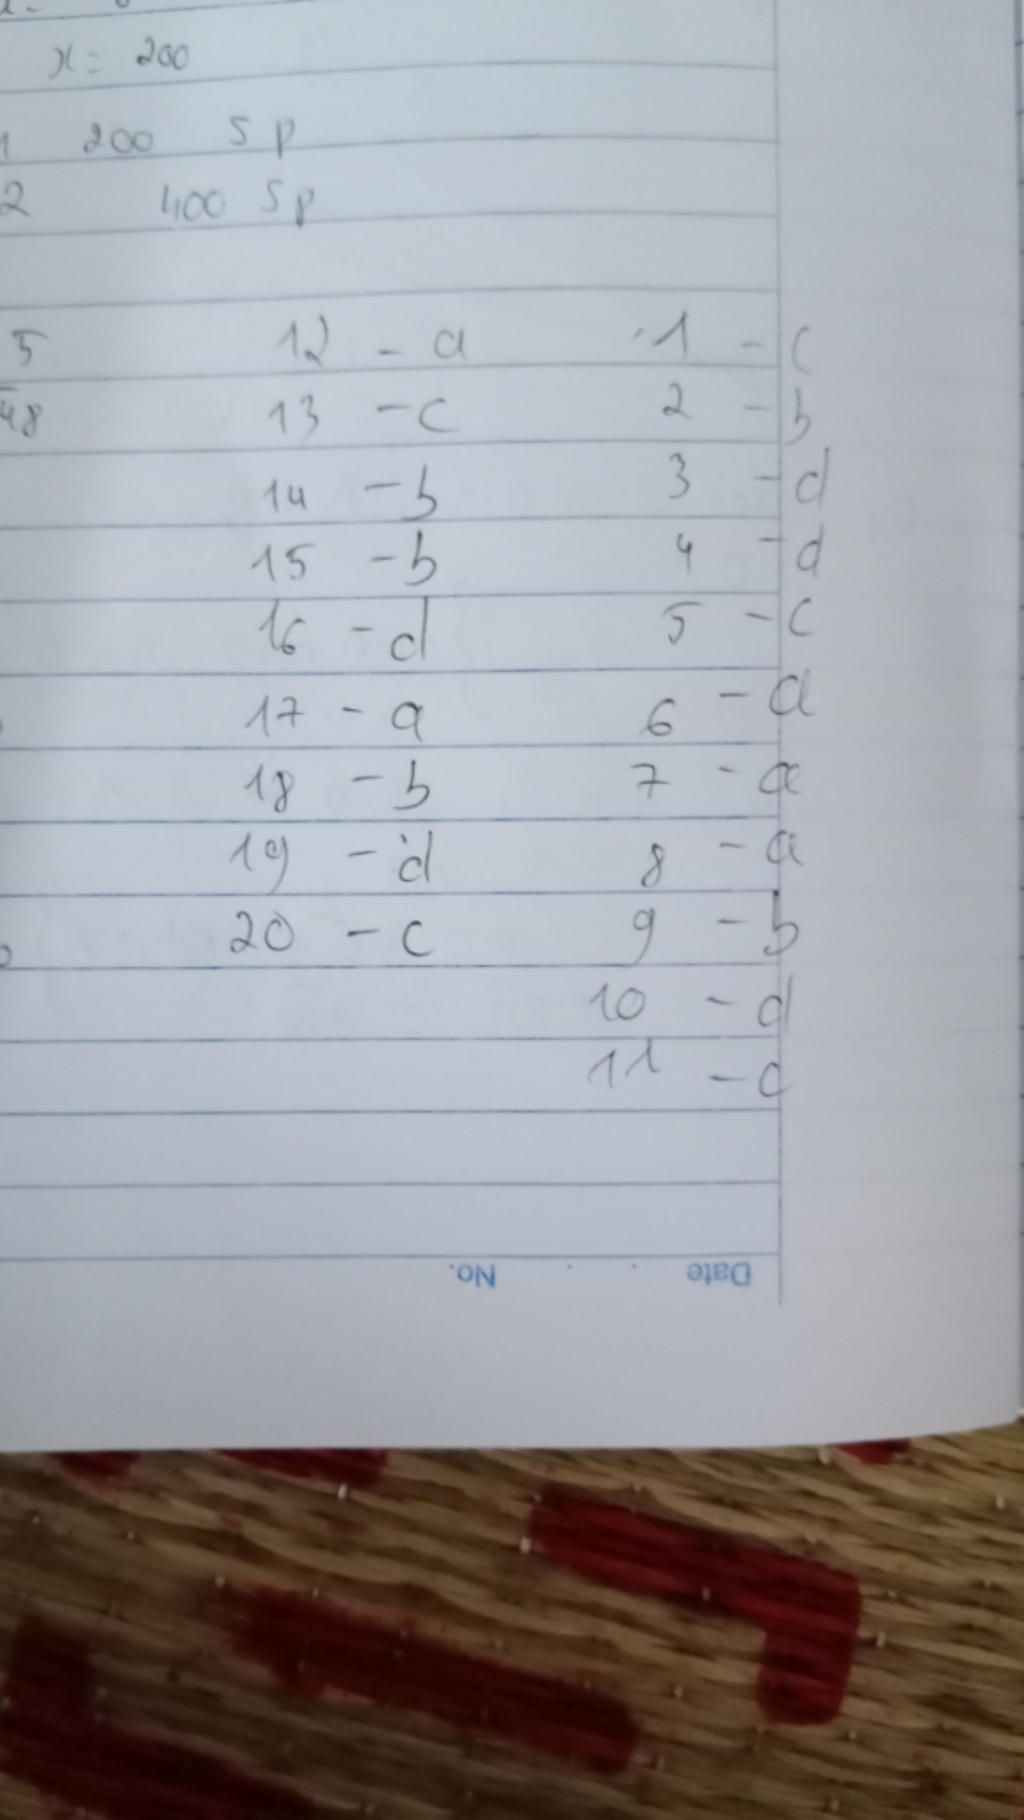 x = 200
1 200 sp
2 400 sp
5 12 - a 1 - c
48 13 - c 2 - b
14 - b 3 - d
15 - b 4 - d
16 - d 5 - c
17 - a 6 - a
18 - b 7 - a
19 - d 8 - a
20 - c 9 - b
10 - d
11 - c
No. Date